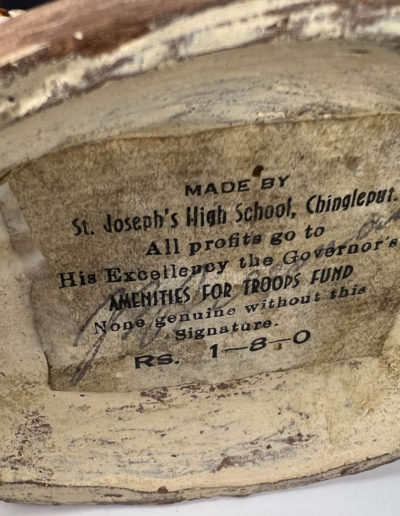 MADE BY
St. Joseph's High School, Chingleput.
All profits go to
His Excellency the Governor's
AMENITIES FOR TROOPS FUND
None genuine without this
Signature.
Rs. 1—8—0